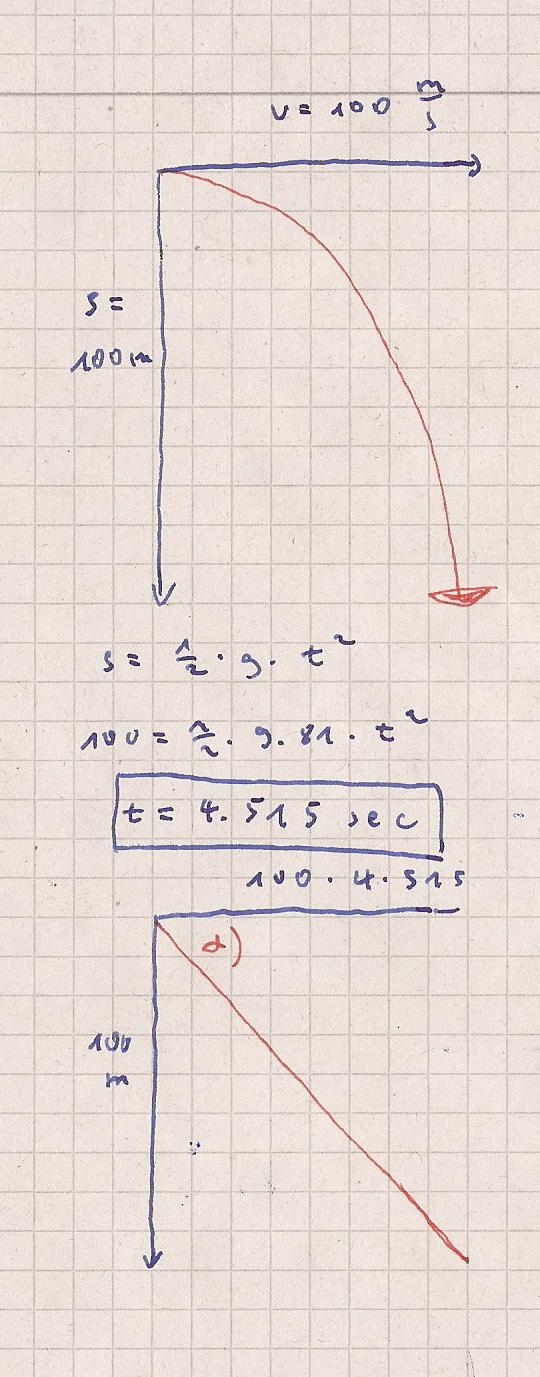 v = 100 m/s
s =
100 m
s = 1/2 · g · t²
100 = 1/2 · 9.81 · t²
t = 4.515 sec
100 · 4.515
α)
100
m